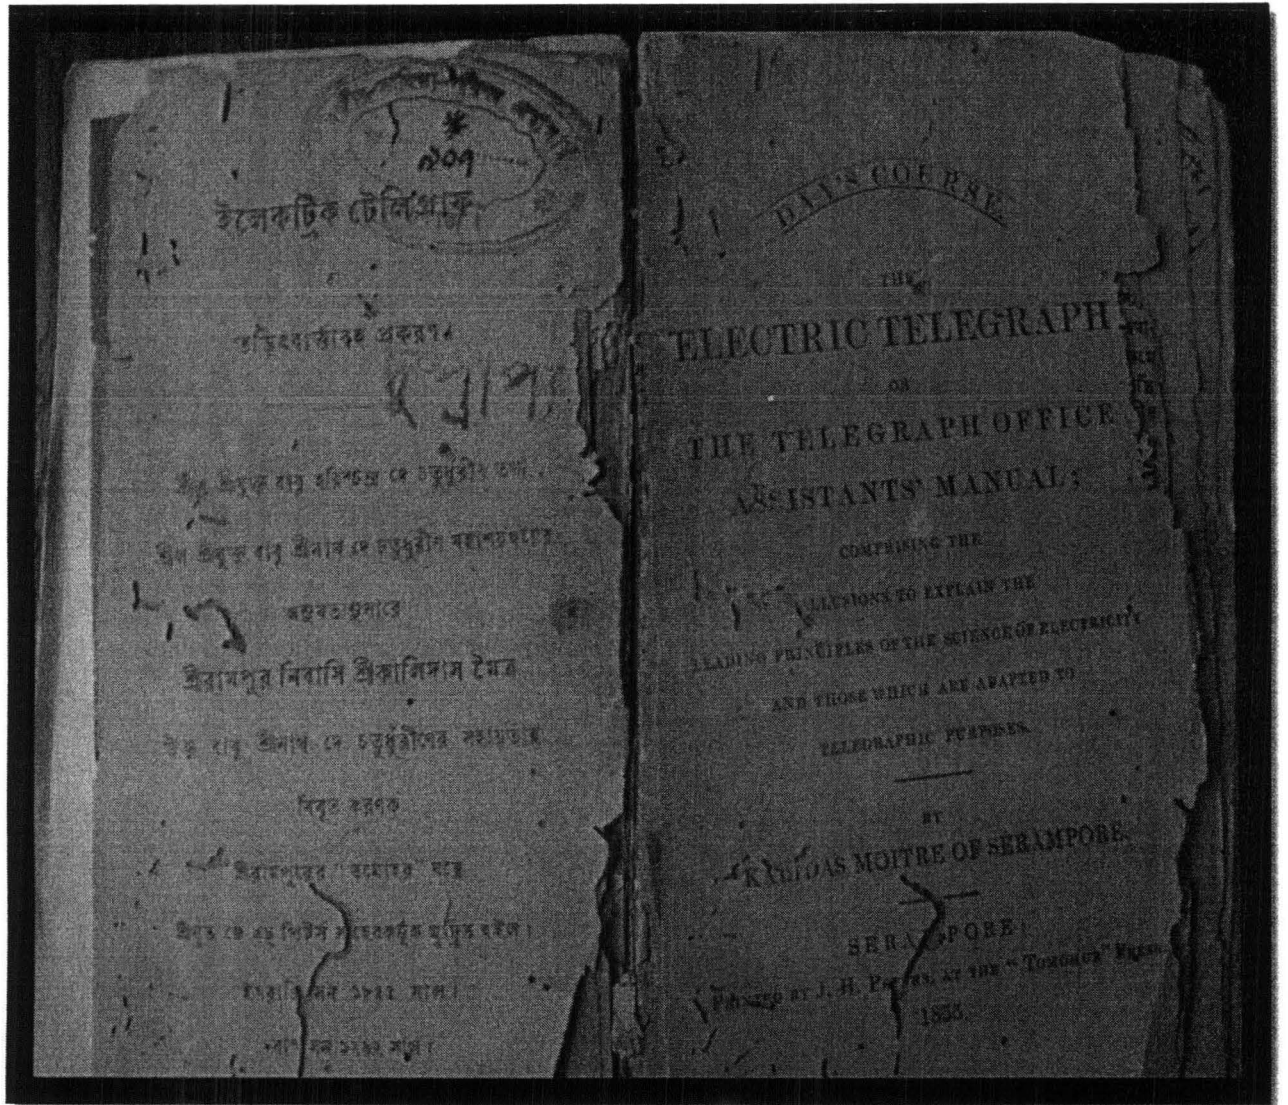 ৯০৭
ইলেকট্রিক টেলিগ্রাফ
তড়িৎবার্ত্তাবহ প্রকরণ।
শ্রীযুক্ত বাবু হরিশ্চন্দ্র দে চতুর্ধুরীণ তথা
শ্রীল শ্রীযুক্ত বাবু শ্রীনাথ দে চতুর্ধুরীণ মহাশয়দ্বয়ের
শ্রীরামপুর নিবাসি শ্রীকালিদাস মৈত্র
উক্ত বাবু শ্রীনাথ দে চতুর্ধুরীণের সহায়তায়
বিবৃত করণক
শ্রীরামপুরের "তমোহর" যন্ত্রে
শ্রীযুত জে এচ পিটর্স সাহেবকর্তৃক মুদ্রিত হইল।
ইংরাজি সন ১৮৫৫ সাল।
সন ১২৬২ সাল।
DAY'S COURSE.
THE
ELECTRIC TELEGRAPH
OR
THE TELEGRAPH OFFICE
ASSISTANTS' MANUAL;
COMPRISING THE
LLUSIONS TO EXPLAIN THE
LEADING PRINCIPLES OF THE SCIENCE OF ELECTRICITY
AND THOSE WHICH ARE ADAPTED TO
TELEGRAPHIC PURPOSES.
BY
KALIDAS MOITRE OF SERAMPORE.
SERAMPORE:
PRINTED BY J. H. PETERS, AT THE "TOMOHUR" PRESS.
1855.